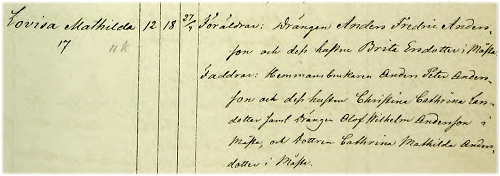 Lovisa Mathilda 12 18 27/7 Föräldrar: Drängen Anders Fredric Anders-
17
son och dess hustru Brita Ersdotter i Måsta
Faddrar: Hemmansbrukaren Anders Peter Anders-
son och dess hustru Christina Cathrina Lars-
dotter samt Drängen Olof Wilhelm Andersson i
Måsta, och Dottren Cathrina Mathilda Anders-
dotter i Måsta.